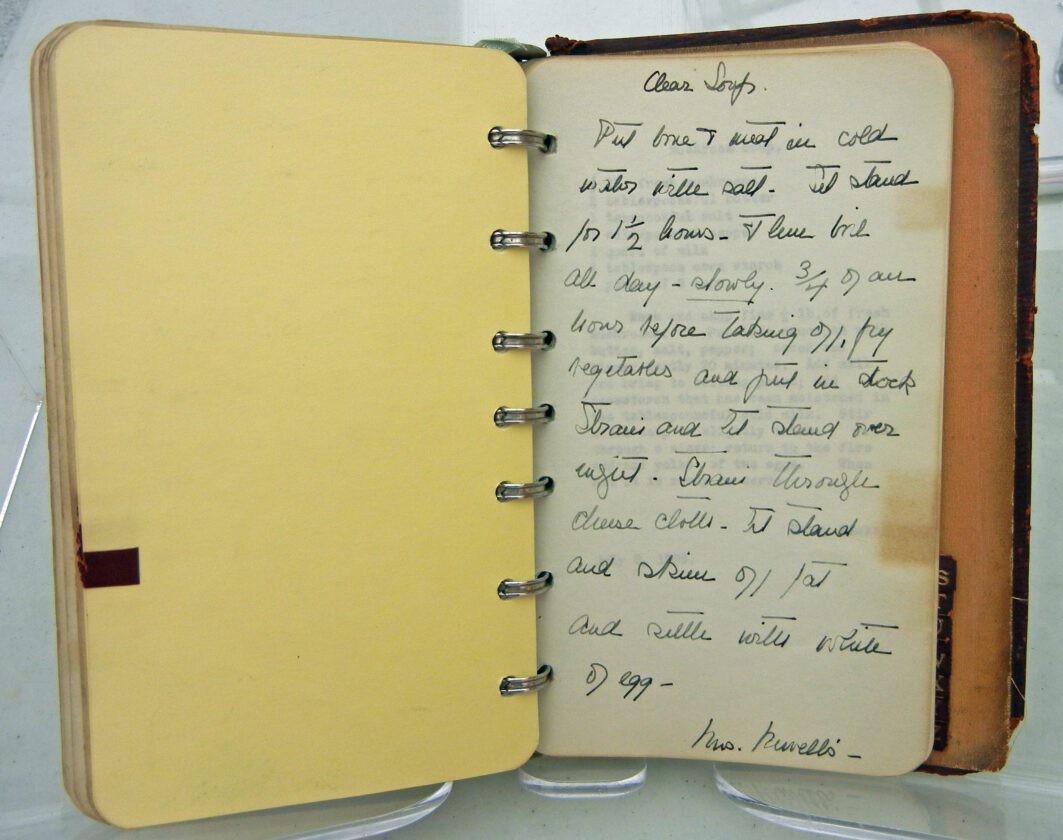 Clear Soup.
Put bone & meat in cold
water with salt. Let stand
for 1 1/2 hours - Then boil
all day - slowly. 3/4 of an
hour before taking off, fry
vegetables and put in stock
Strain and let stand over
night. Strain through
cheese cloth - Let stand
and skim off fat
and settle with white
of egg -
Mrs.